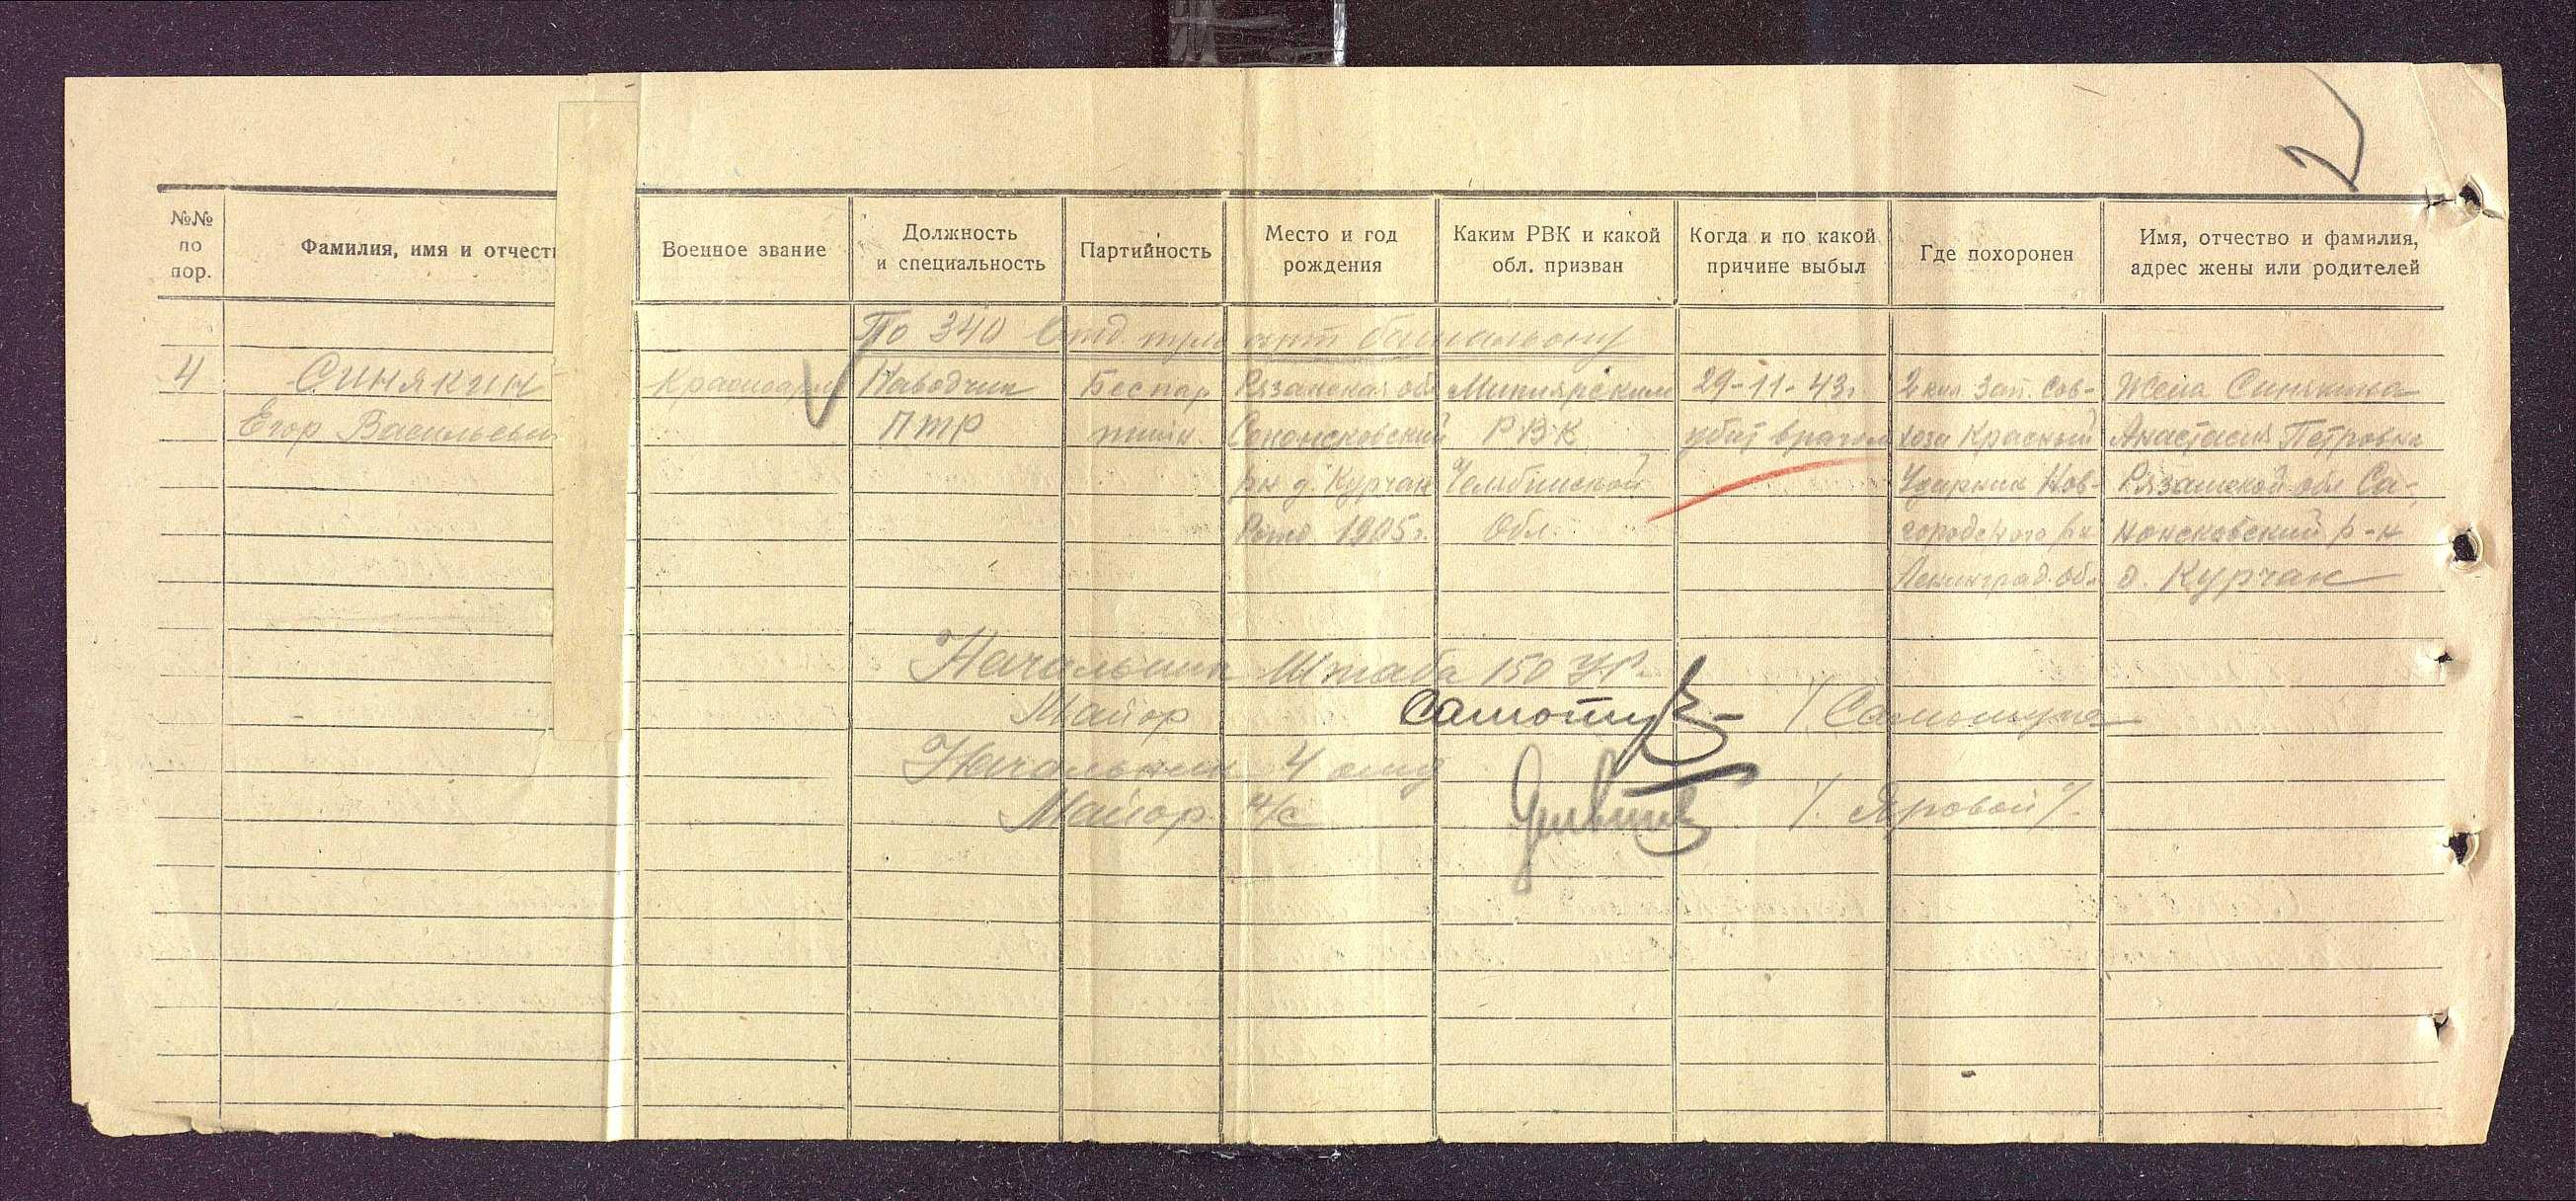 №№ по пор.
Фамилия, имя и отчест
Военное звание
Должность и специальность
Партийность
Место и год рождения
Каким РВК и какой обл. призван
Когда и по какой причине выбыл
Где похоронен
Имя, отчество и фамилия, адрес жены или родителей
По 340 Отд. пул. арт батальону
4 Синякин Красноарм Наводчик Беспар Рязанская обл Миньярским 29-11-43г. 2 км зап. Сов- Жена Синякина
Егор Васильеви ПТР тийн. РВК убит врагом хоза Красный Анастасия Петровна
рн д. Курчак Челябинской Ударник Нов- Рязанской обл Са-
Рожд 1905г. Обл. городского рн понсковский р-н
Ленинград. обл д. Курчак
Начальник Штаба 150 УР.
Майор Самоту /Самотуга
Начальник 4 отд
Майор а/с /Яровой/.